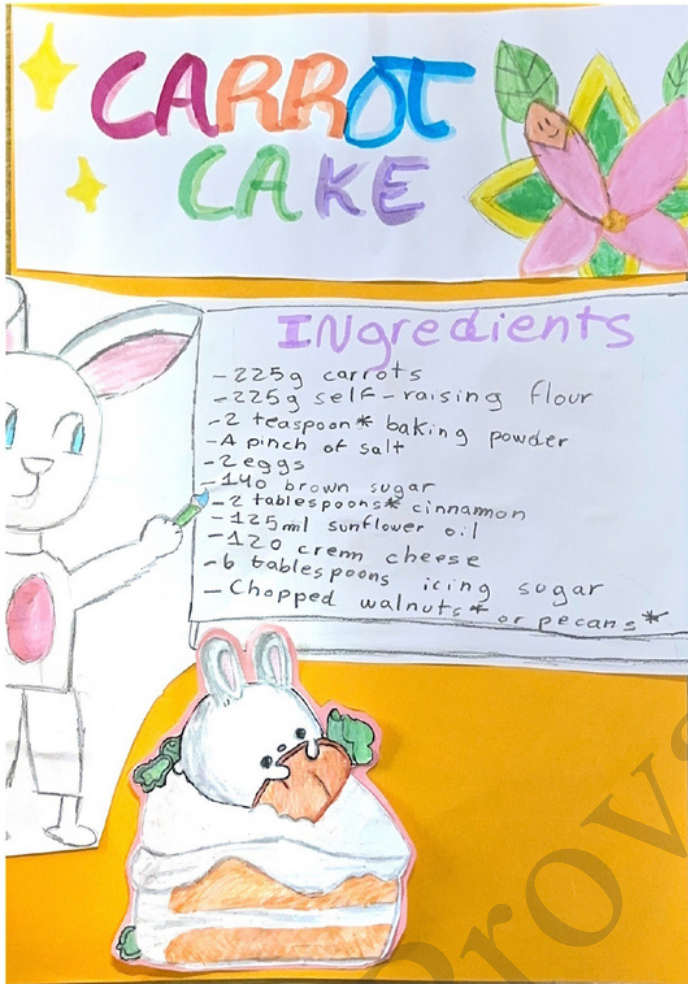 CARROT
CAKE
INgredients
-225g carrots
-225g self-raising flour
-2 teaspoon* baking powder
-A pinch of salt
-2 eggs
-140 brown sugar
-2 tablespoons* cinnamon
-125ml sunflower oil
-120 cremn cheese
-6 tablespoons icing sugar
-Chopped walnuts* or pecans*
Prova